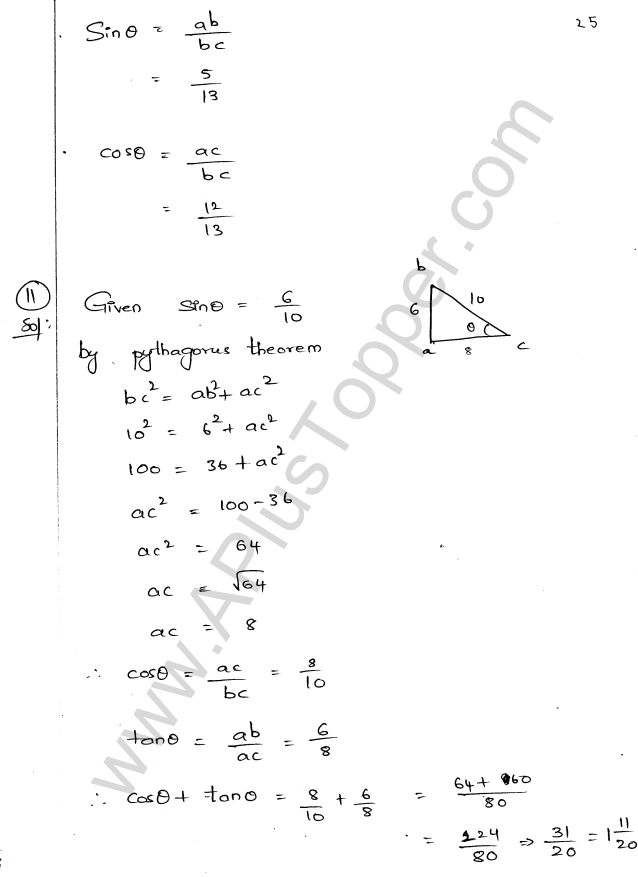 25
Sinθ = ab/bc
= 5/13
cosθ = ac/bc
= 12/13
11 Given sinθ = 6/10
Sol:
by pythagorus theorem
b
10
6
θ
a
8
c
bc² = ab² + ac²
10² = 6² + ac²
100 = 36 + ac²
ac² = 100 - 36
ac² = 64
ac = √64
ac = 8
∴ cosθ = ac/bc = 8/10
tanθ = ab/ac = 6/8
∴ cosθ + tanθ = 8/10 + 6/8 = 64 + 60/80
= 124/80 ⇒ 31/20 = 1 11/20
www.APlusTopper.com